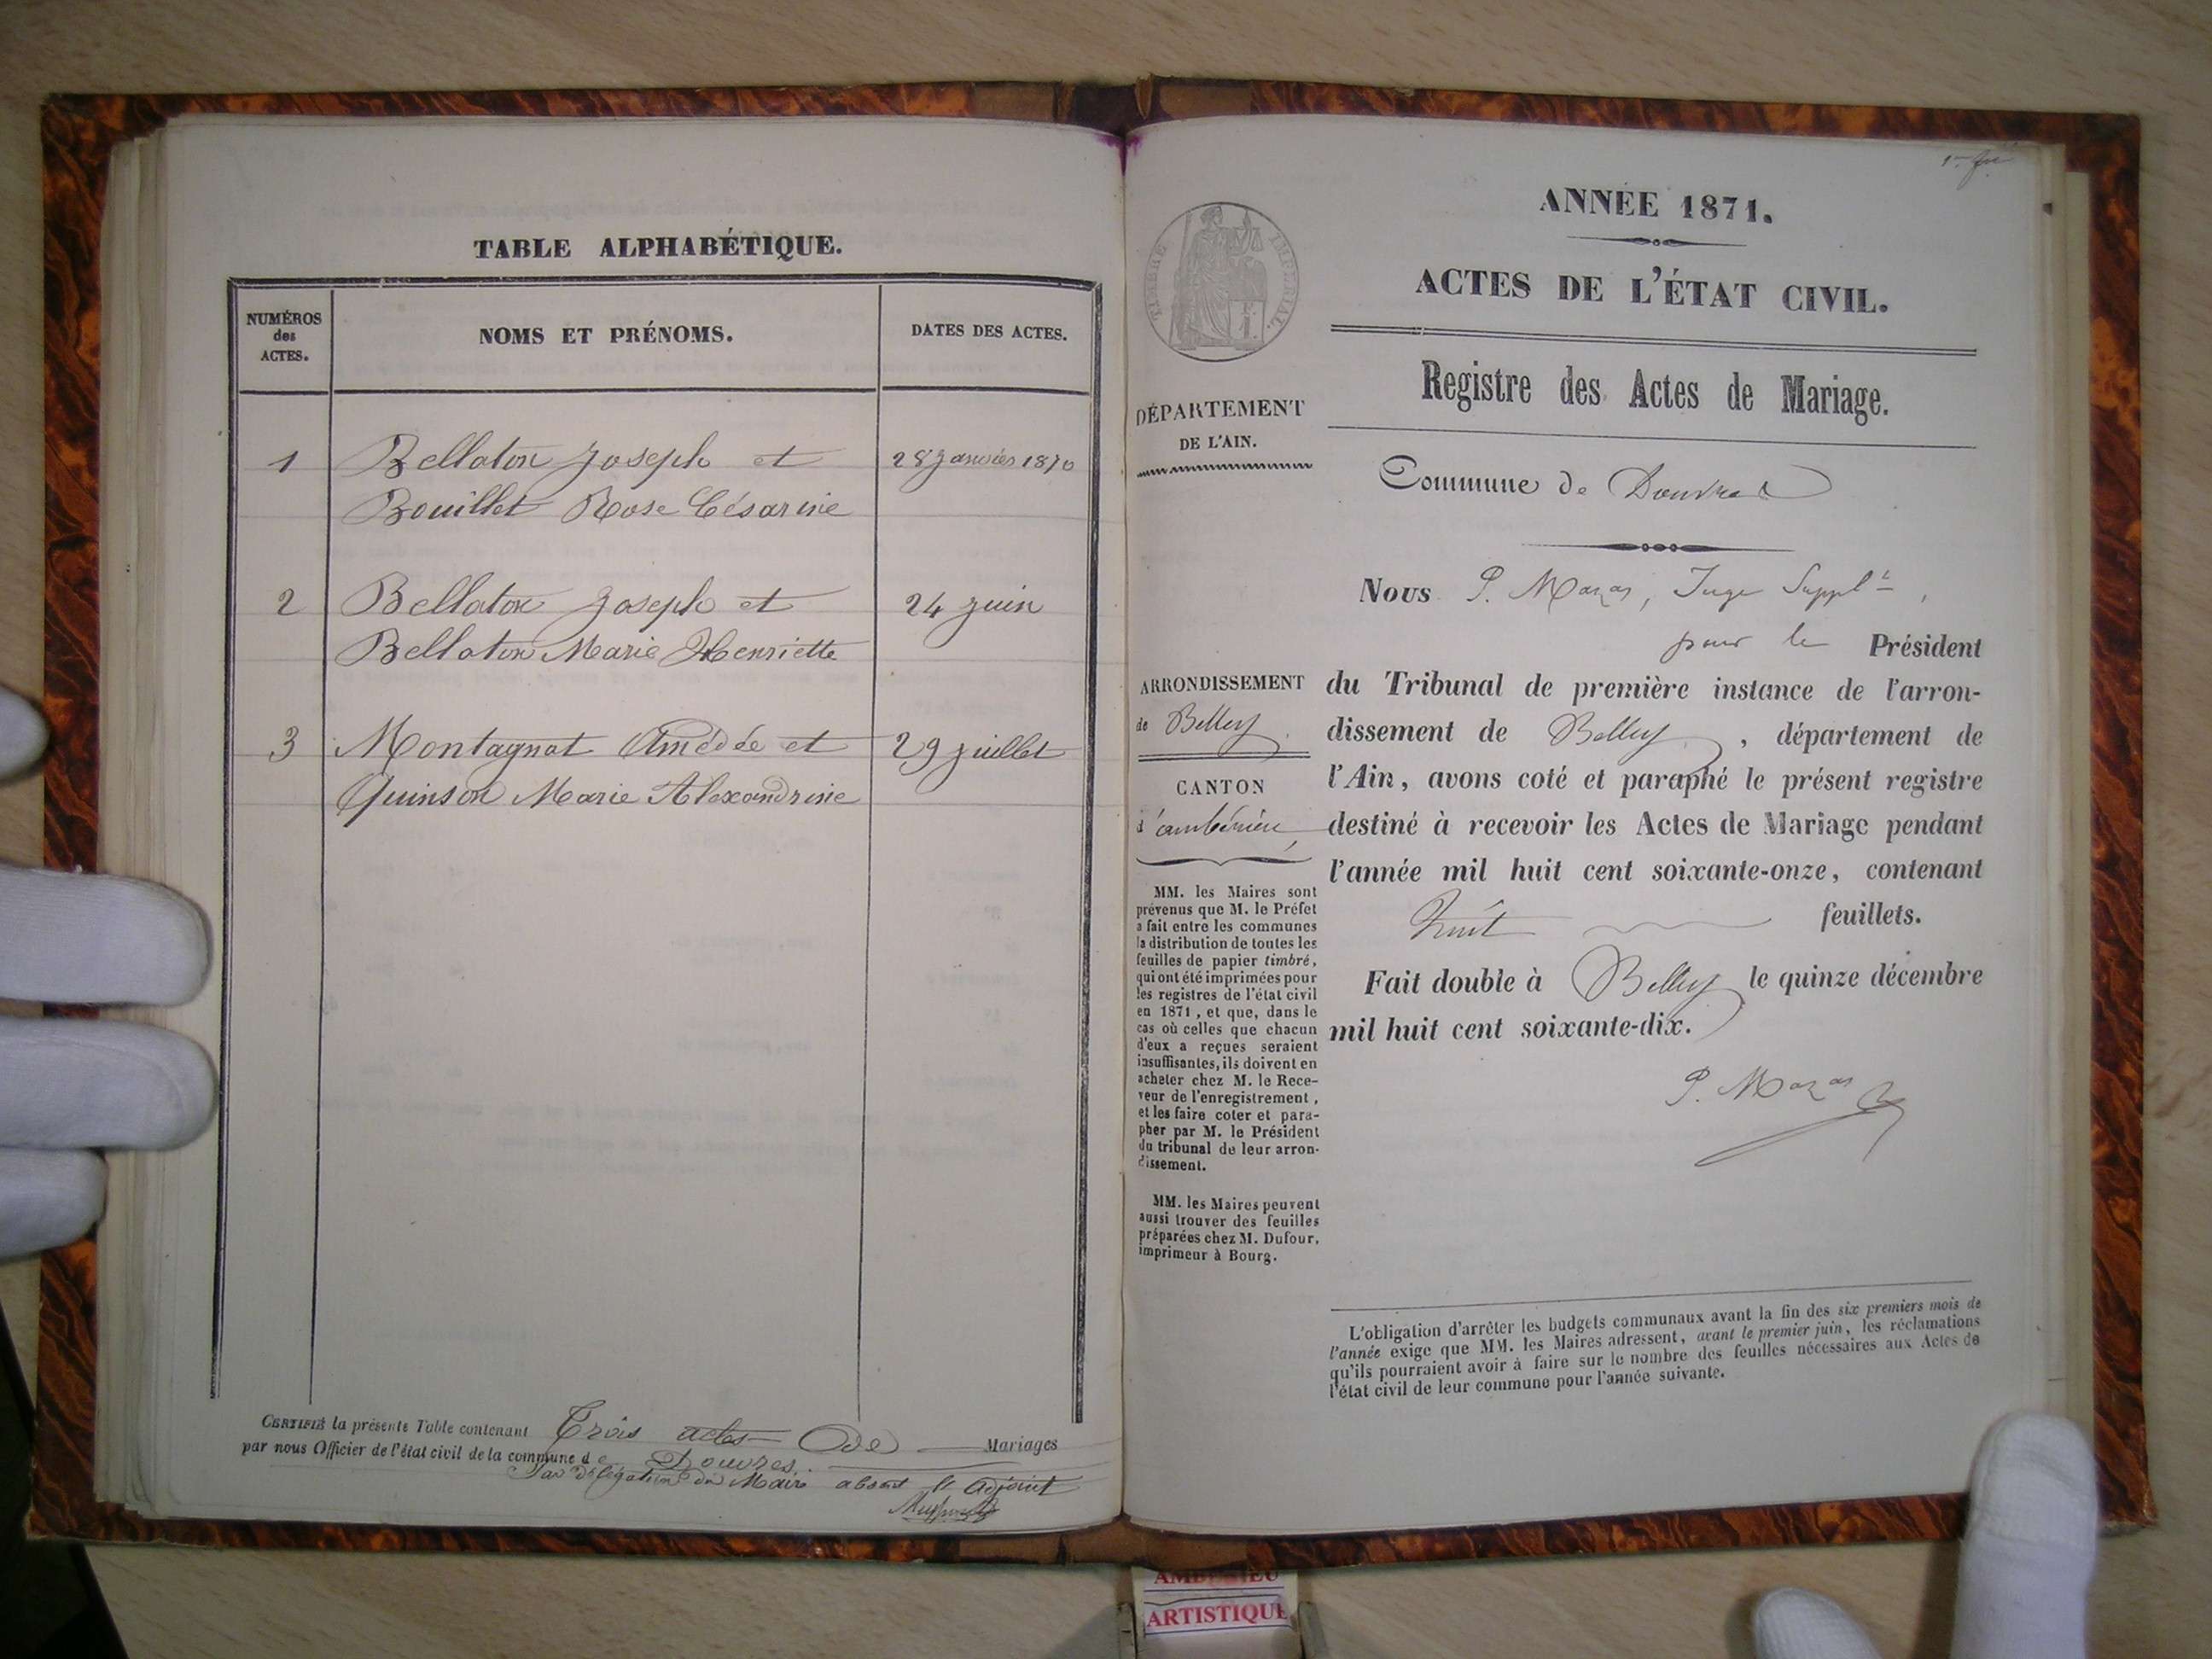 TABLE ALPHABÉTIQUE.
NUMÉROS
des
ACTES.
NOMS ET PRÉNOMS.
DATES DES ACTES.
1 Bellaton Joseph et 28 Janvier 1870
Bouillet Rose Césarine
2 Bellaton Joseph et 24 juin
Bellaton Marie Henriette
3 Montagnat Amédée et 29 juillet
Quinson Marie Alexandrine
CERTIFIÉ la présente Table contenant Trois actes de Mariages
par nous Officier de l'état civil de la commune de Douvres.
Par délégation du Maire absent l'adjoint
ANNÉE 1871.
ACTES DE L'ÉTAT CIVIL.
Registre des Actes de Mariage.
TIMBRE IMPÉRIAL.
DÉPARTEMENT
DE L'AIN.
Commune de Douvres
Nous P. Mazas, Juge Suppl.t,
pour le Président
ARRONDISSEMENT
de Belley
CANTON
d'ambérieu
du Tribunal de première instance de l'arron-
dissement de Belley, département de
l'Ain, avons coté et paraphé le présent registre
destiné à recevoir les Actes de Mariage pendant
l'année mil huit cent soixante-onze, contenant
huit feuillets.
Fait double à Belley le quinze décembre
mil huit cent soixante-dix.
P. Mazas
MM. les Maires sont
prévenus que M. le Préfet
a fait entre les communes
la distribution de toutes les
feuilles de papier timbré,
qui ont été imprimées pour
les registres de l'état civil
en 1871, et que, dans le
cas où celles que chacun
d'eux a reçues seraient
insuffisantes, ils doivent en
acheter chez M. le Rece-
veur de l'enregistrement,
et les faire coter et para-
pher par M. le Président
du tribunal de leur arron-
dissement.
MM. les Maires peuvent
aussi trouver des feuilles
préparées chez M. Dufour,
imprimeur à Bourg.
L'obligation d'arrêter les budgets communaux avant la fin des six premiers mois de
l'année exige que MM. les Maires adressent, avant le premier juin, les réclamations
qu'ils pourraient avoir à faire sur le nombre des feuilles nécessaires aux Actes de
l'état civil de leur commune pour l'année suivante.
ARTISTIQUE